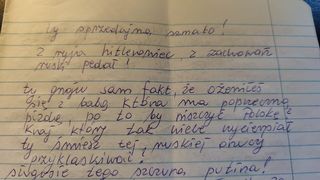 ty sprzedajna szmato!
z ryja hitlerowiec, z zachowań
ruski pedał!
ty gnoju sam fakt, że ożeniłeś
się z babą, która ma poprzeczną
pizdę, po to by niszczyć Polskę
kraj który tak wiele wycierpiał
ty śmiesz tej, ruskiej onucy
przyklaskiwać!
sługusie tego szczura putina!